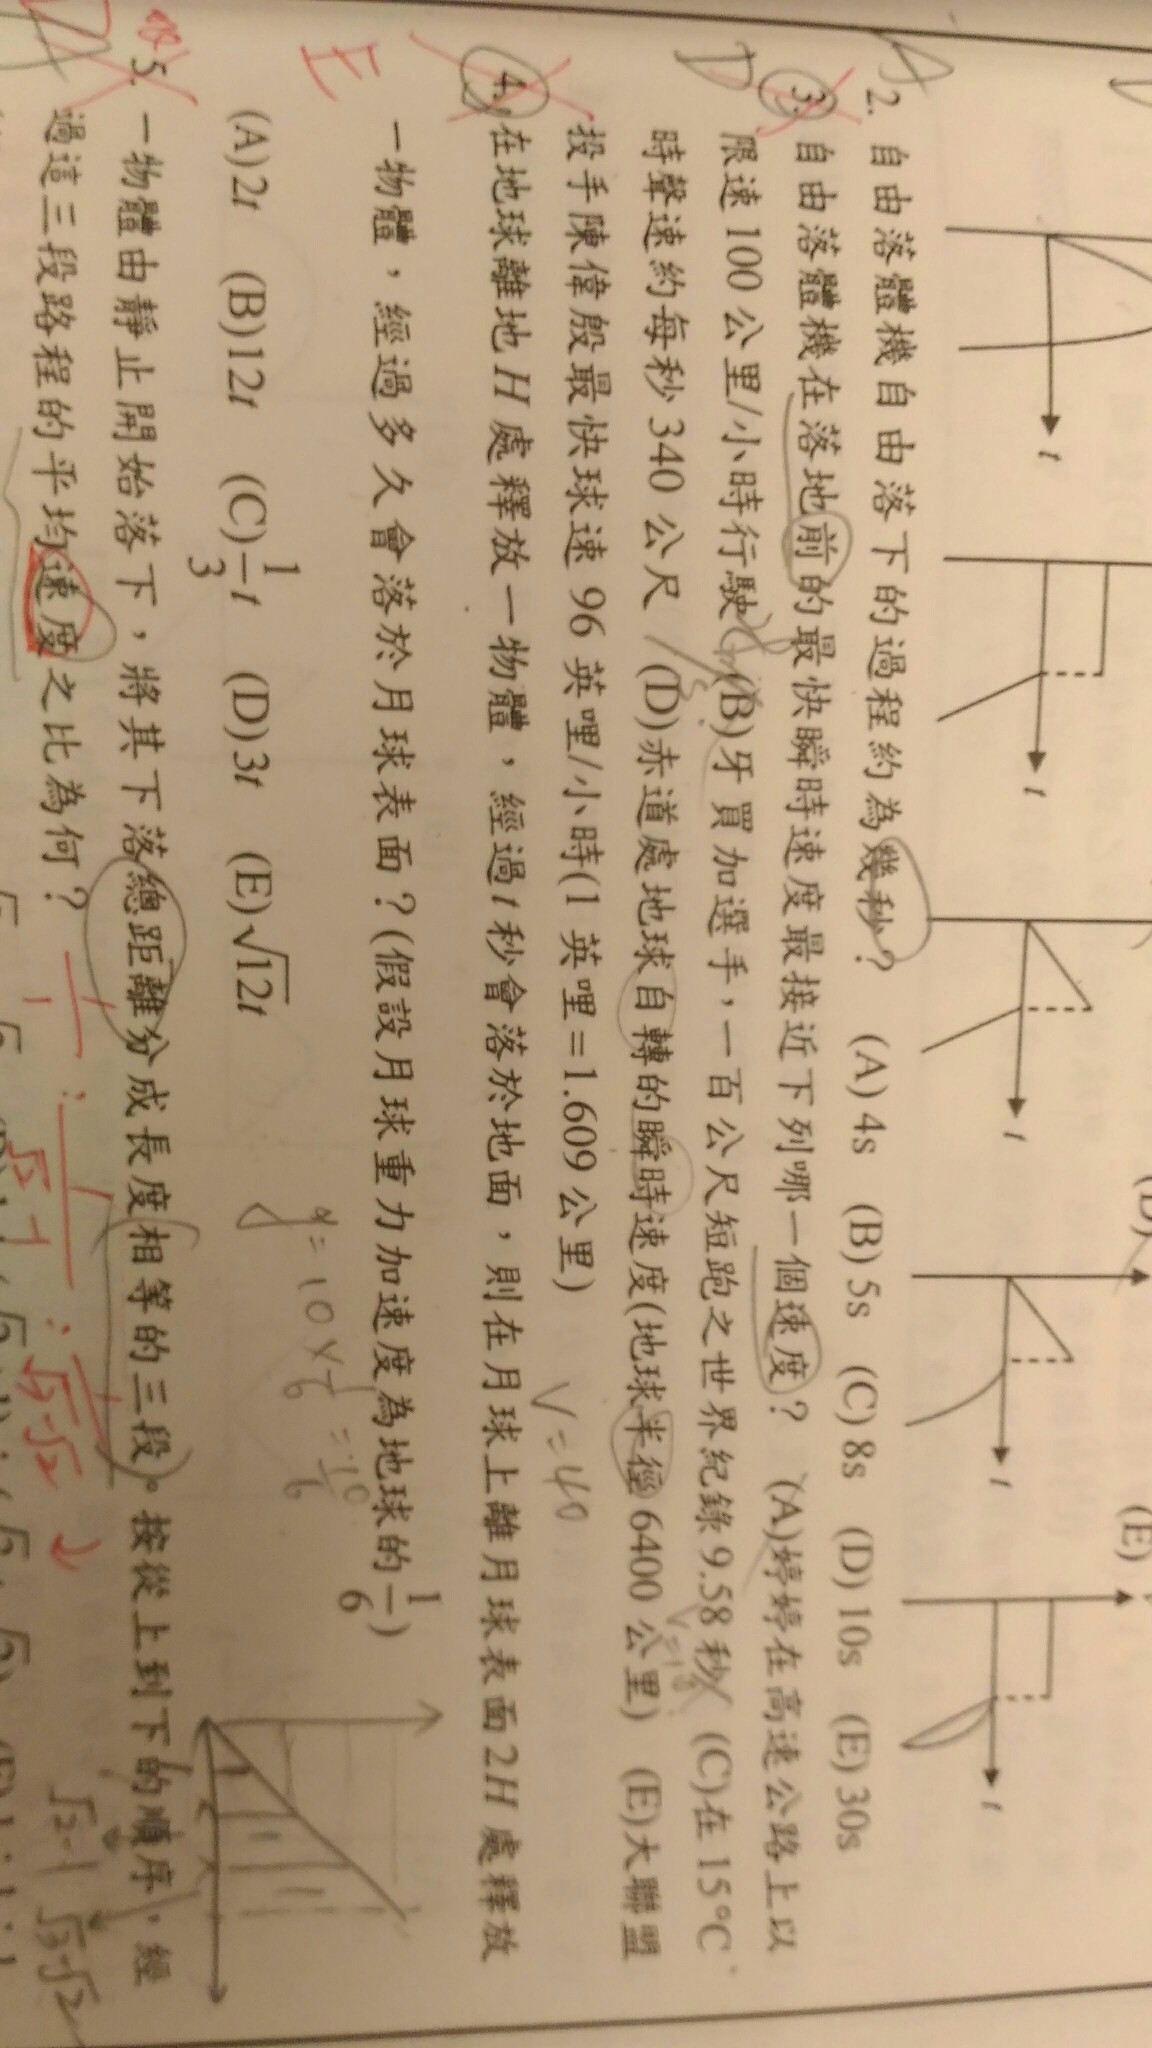 (D)
(E)
t
t
t
t
t
2. 自由落體機自由落下的過程約為幾秒? (A) 4s (B) 5s (C) 8s (D) 10s (E) 30s
D
3. 自由落體機在落地前的最快瞬時速度最接近下列哪一個速度? (A)婷婷在高速公路上以
限速 100 公里/小時行駛 (B)牙買加選手,一百公尺短跑之世界紀錄 9.58 秒 (C)在 15°C
時聲速約每秒 340 公尺 (D)赤道處地球自轉的瞬時速度(地球半徑 6400 公里) (E)大聯盟
投手陳偉殷最快球速 96 英哩/小時(1 英哩=1.609 公里)
V=40
E
4. 在地球離地 H 處釋放一物體,經過 t 秒會落於地面,則在月球上離月球表面 2H 處釋放
一物體,經過多久會落於月球表面?(假設月球重力加速度為地球的 1/6)
g=10×1/6=10/6
(A)2t (B)12t (C)1/3 t (D)3t (E)√12t
5. 一物體由靜止開始落下,將其下落總距離分成長度相等的三段。按從上到下的順序,經
過這三段路程的平均速度之比為何?
1/1 : 1/(√2-1) : 1/(√3-√2)
√2-1 √3-√2